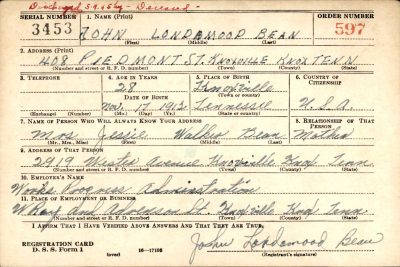 SERIAL NUMBER
1. NAME (Print)
ORDER NUMBER
3453
JOHN LONDEMOOD BEAN
597
(First) (Middle) (Last)
2. ADDRESS (Print)
408 PIEDMONT ST. KNOXVILLE KNOX TENN
(Number and street or R. F. D. number) (Town) (County) (State)
3. TELEPHONE
4. AGE IN YEARS
5. PLACE OF BIRTH
6. COUNTRY OF CITIZENSHIP
28
Knoxville
DATE OF BIRTH
(Town or county)
Nov. 17 1912
Tennessee
U.S.A.
(Exchange) (Number)
(Mo.) (Day) (Yr.)
(State or country)
7. NAME OF PERSON WHO WILL ALWAYS KNOW YOUR ADDRESS
8. RELATIONSHIP OF THAT PERSON
Mrs. Jessie Walker Bean
Mother
(Mr., Mrs., Miss) (First) (Middle) (Last)
9. ADDRESS OF THAT PERSON
2919 Avenue Knoxville Knox Tenn
(Number and street or R. F. D. number) (Town) (County) (State)
10. EMPLOYER'S NAME
Works Progress Administration
11. PLACE OF EMPLOYMENT OR BUSINESS
And St. Knoxville Knox Tenn
(Number and street or R. F. D. number) (Town) (County) (State)
I AFFIRM THAT I HAVE VERIFIED ABOVE ANSWERS AND THAT THEY ARE TRUE.
REGISTRATION CARD
D. S. S. Form 1
(over)
16—17105
John Londemood Bean